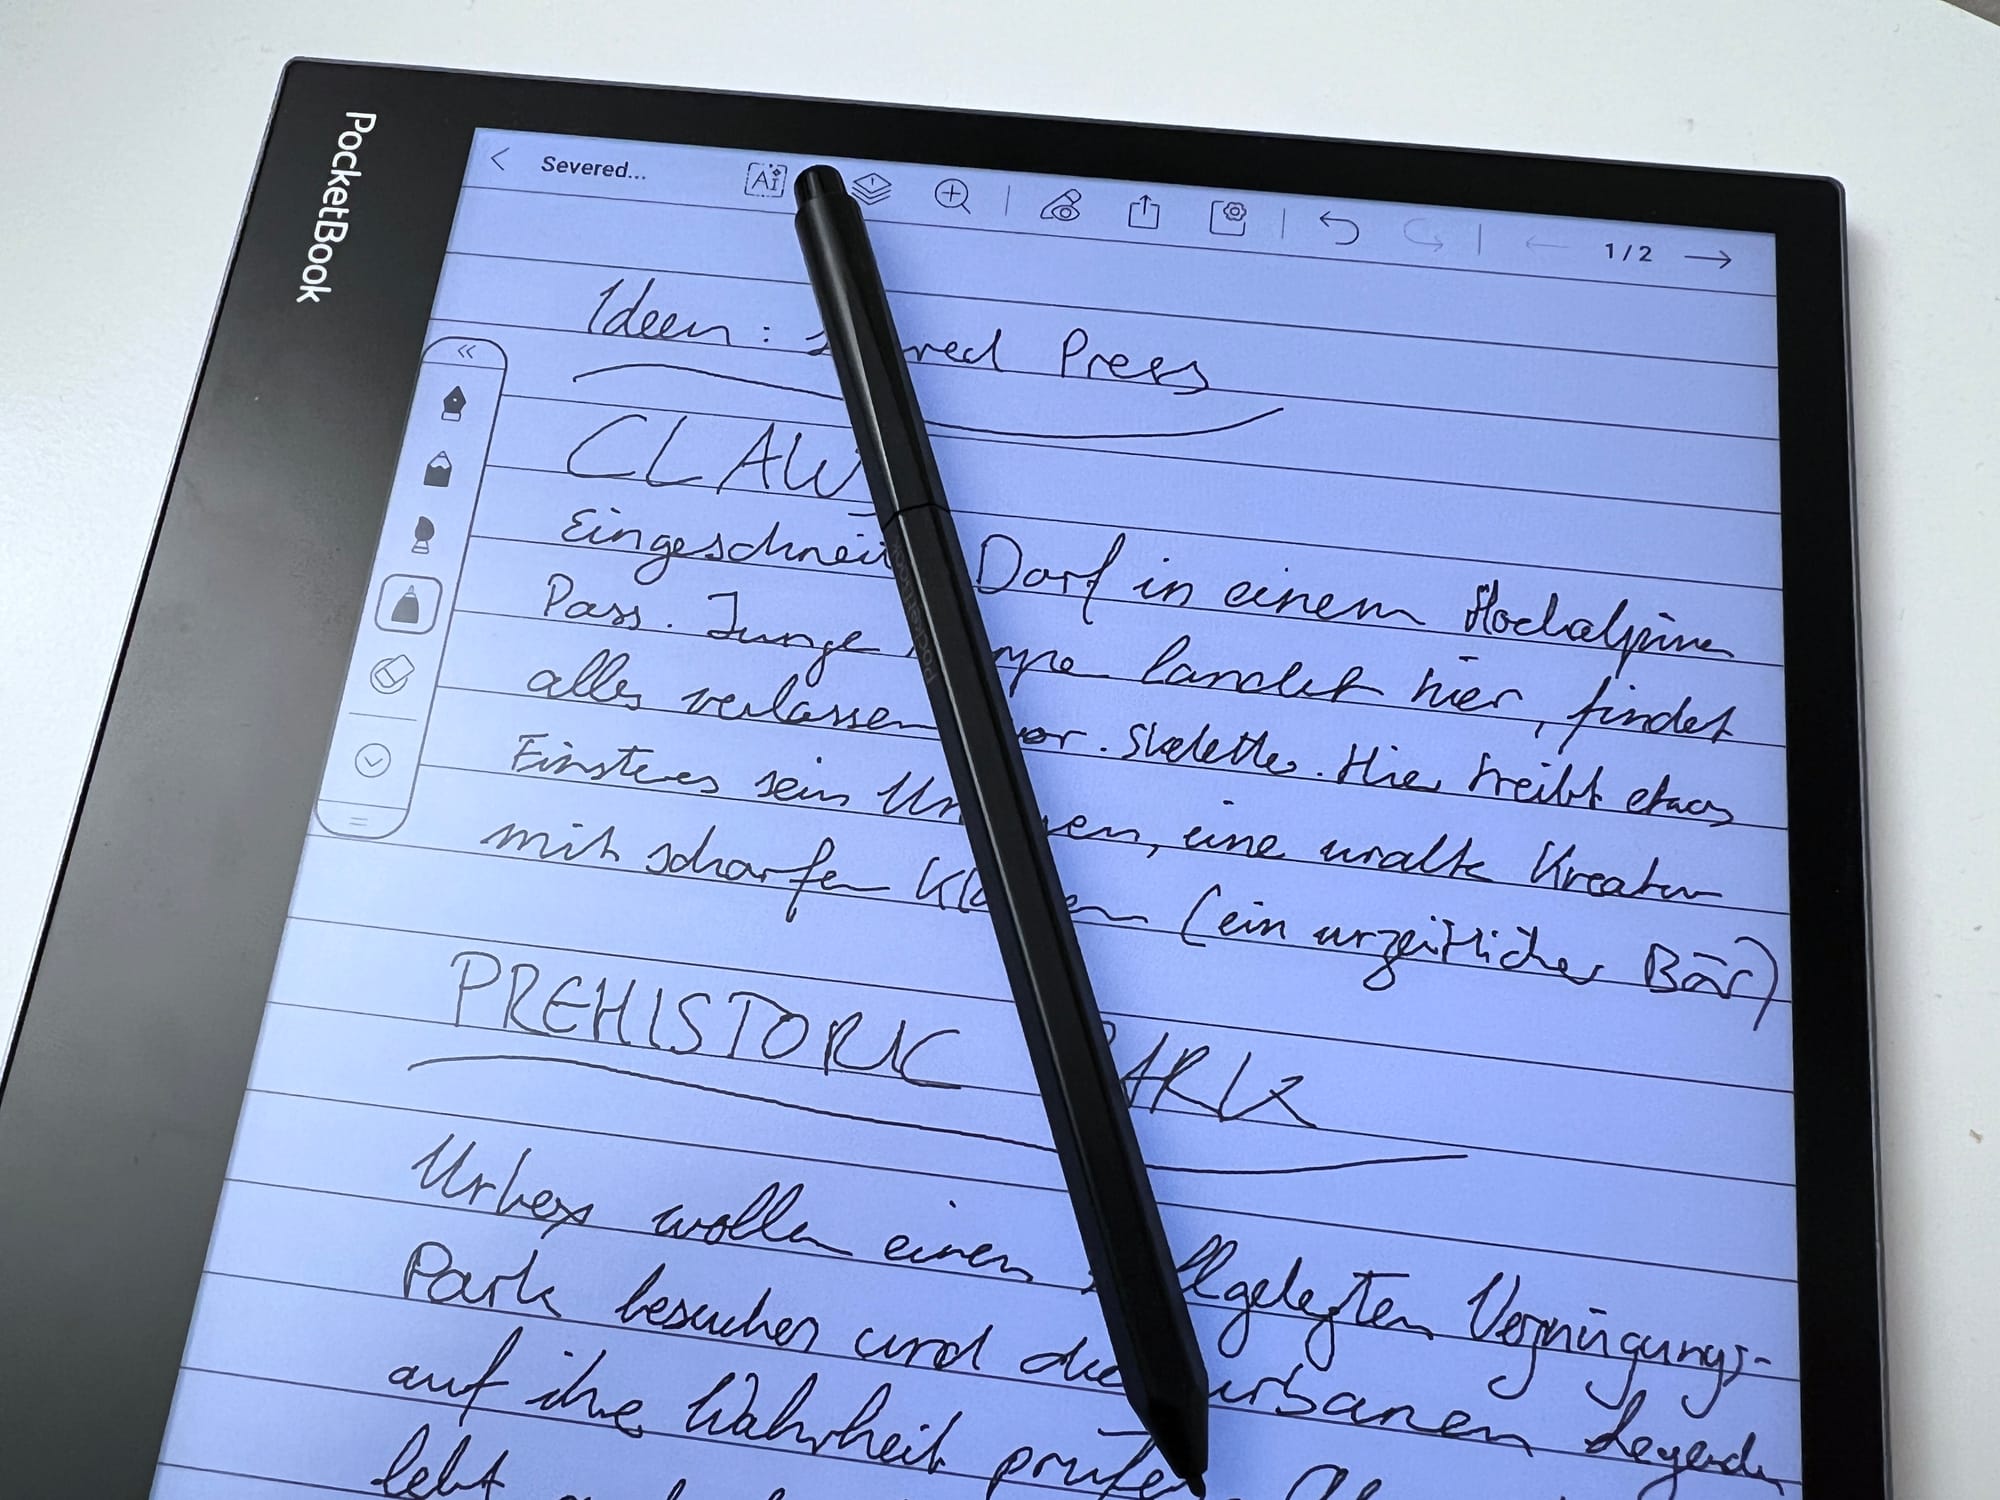 PocketBook
Severed...
Ai
1/2
Ideen: red Press
CLAW
Eingeschneit Dorf in einem Hochalpinen
Pass. Junge landet hier, findet
alles verlassen vor. Skelette. Hier treibt etwas
Einsteres sein en, eine uralte Kreatur
mit scharfen en (ein urzeitlicher Bär)
PREHISTORIC ARK
Urbex wollen einen llgelegten Vergnügungs-
Park besuchen und die urbanen Legenden
auf ihre Wahrheit prüfen
lebt
PocketBook